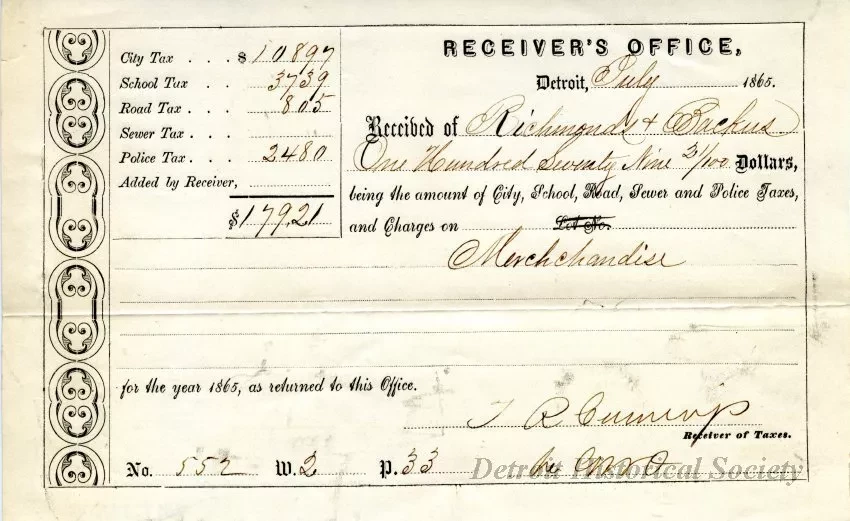 City Tax . . . $ 10897
School Tax . . . 3739
Road Tax . . . 805
Sewer Tax . . .
Police Tax . . . 2480
Added by Receiver,
$179.21
RECEIVER'S OFFICE,
Detroit, July 1865.
Received of Richmonds & Backus
One Hundred Seventy Nine 21/100 Dollars,
being the amount of City, School, Road, Sewer and Police Taxes,
and Charges on Lot No.
Merchchandise
for the year 1865, as returned to this Office.
Receiver of Taxes.
No. 552 W. 2 P. 33
Detroit Historical Society